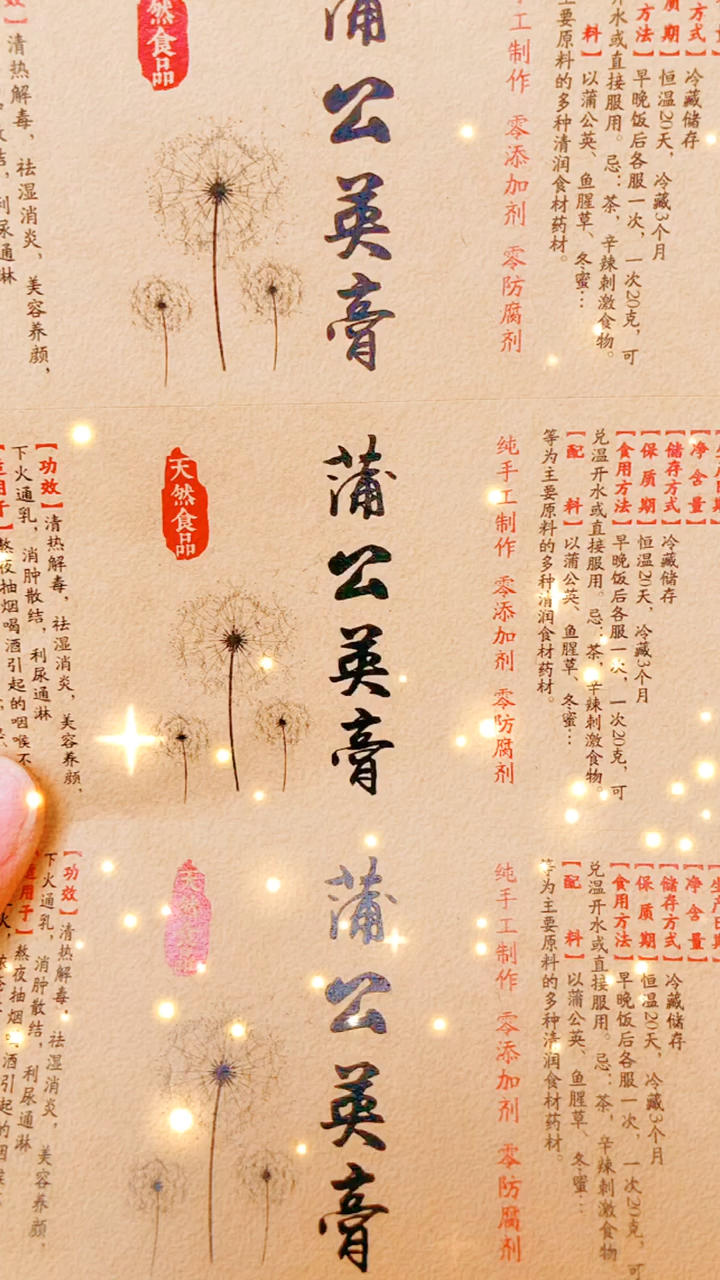 然食品
蒲公英膏
工制作 零添加剂 零防腐剂
冷藏储存
恒温20天，冷藏3个月
方法】早晚饭后各服一次，一次20克，可
开水或直接服用。忌：茶，辛辣刺激食物。
料】以蒲公英、鱼腥草、冬蜜…
主要原料的多种清润食材药材。
清热解毒，祛湿消炎，美容养颜，
天然食品
蒲公英膏
纯手工制作 零添加剂 零防腐剂
【净含量】
【储存方式】冷藏储存
【保质期】恒温20天，冷藏3个月
【食用方法】早晚饭后各服一次，一次20克，可
兑温开水或直接服用。忌：茶，辛辣刺激食物。
【配 料】以蒲公英、鱼腥草、冬蜜…
等为主要原料的多种清润食材药材。
【功效】清热解毒，祛湿消炎，美容养颜，
下火通乳，消肿散结，利尿通淋
熬夜抽烟喝酒引起的咽喉不
天然食品
蒲公英膏
纯手工制作 零添加剂 零防腐剂
【净含量】
【储存方式】冷藏储存
【保质期】恒温20天，冷藏3个月
【食用方法】早晚饭后各服一次，一次20克，可
兑温开水或直接服用。忌：茶，辛辣刺激食物
【配 料】以蒲公英、鱼腥草、冬蜜…
等为主要原料的多种清润食材药材。
【功效】清热解毒，祛湿消炎，美容养颜，
下火通乳，消肿散结，利尿通淋